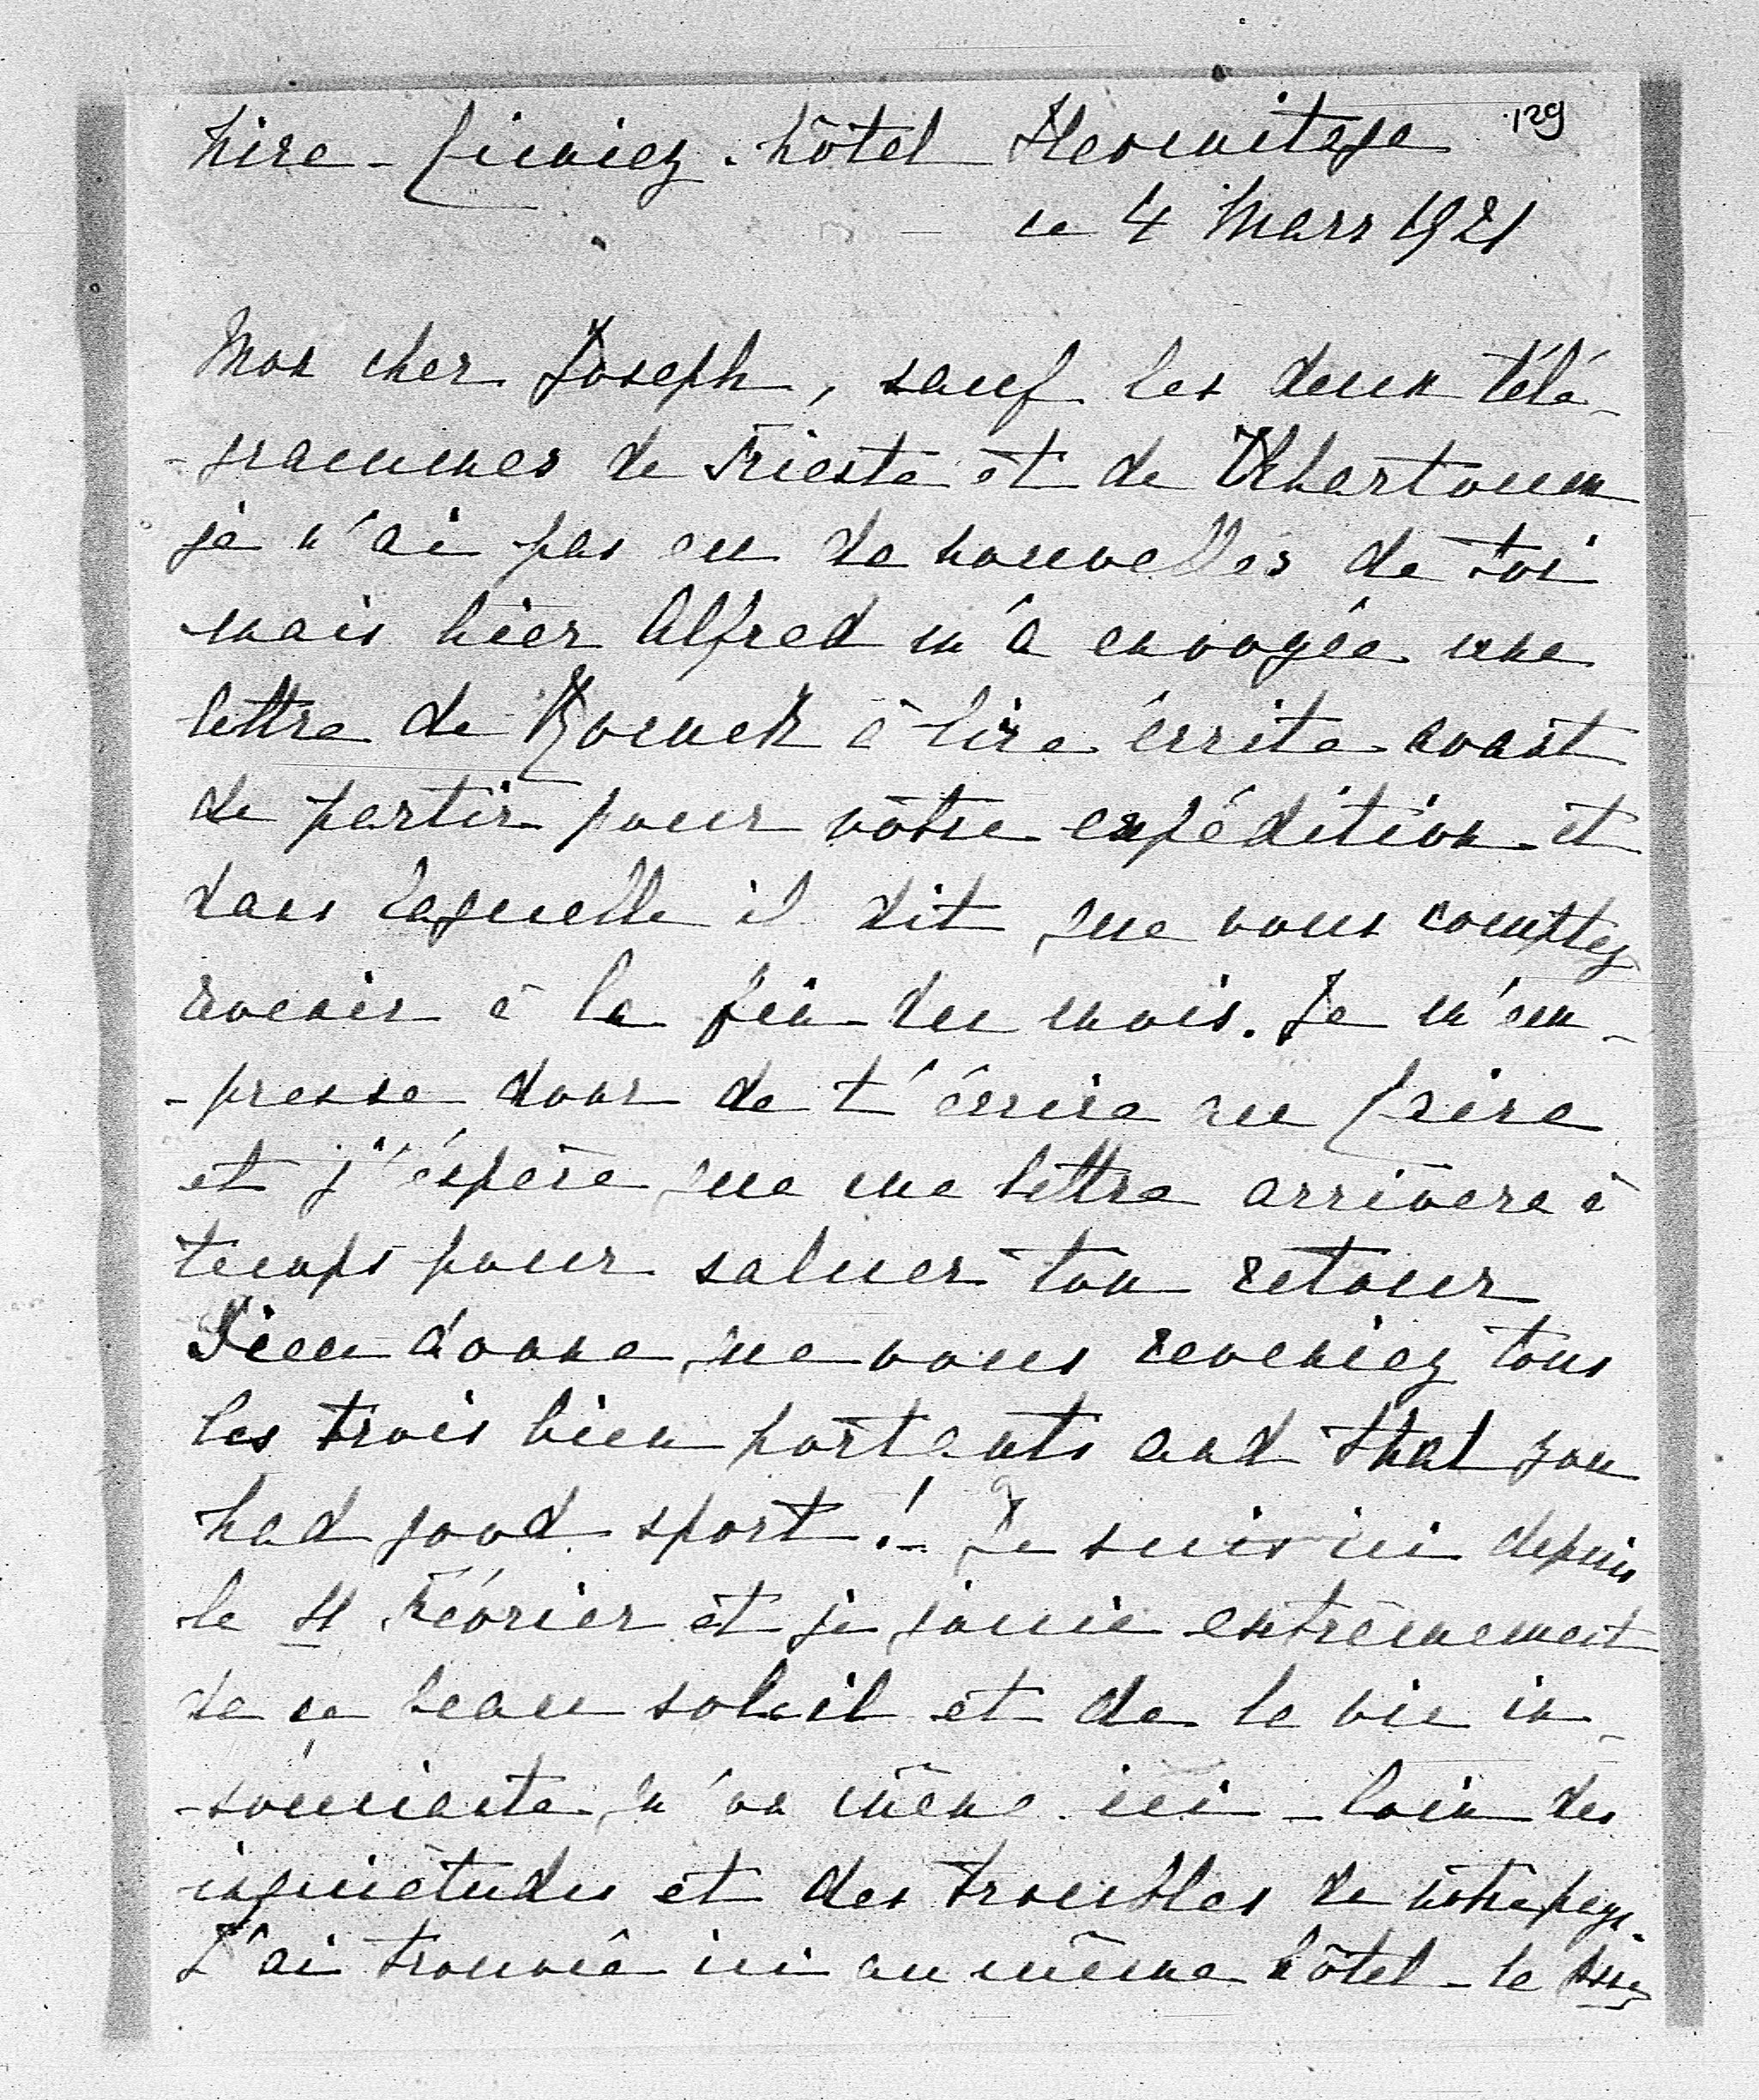 129
Nice - Cimiez. hôtel Hermitage
le 4 Mars 1921
Mon cher Joseph, sauf les deux télé-
-grammes de Trieste et de Khartoum
je n'ai pas eu de nouvelles de toi
mais hier Alfred m'a envoyée une
lettre de à lire écrite avant
de partir pour vôtre expédition et
dans laquelle il dit que vous comptez
revenir à la fin du mois. Je m'em-
-presse donc de t'écrire au Caire
et j'éspère que ma lettre arrivera à
temps pour saluer ton retour
Dieu donne que vous reveniez tous
les trois bien portants and that you
had good sport! Je suis ici depuis
le 11 Février et je jouie extrèmement
de ce beau soleil et de la vie in-
-souciante qu'on mène ici - loin des
inquiétudes et des troubles de nôtre pays.
J'ai trouvé ici au même hôtel - le